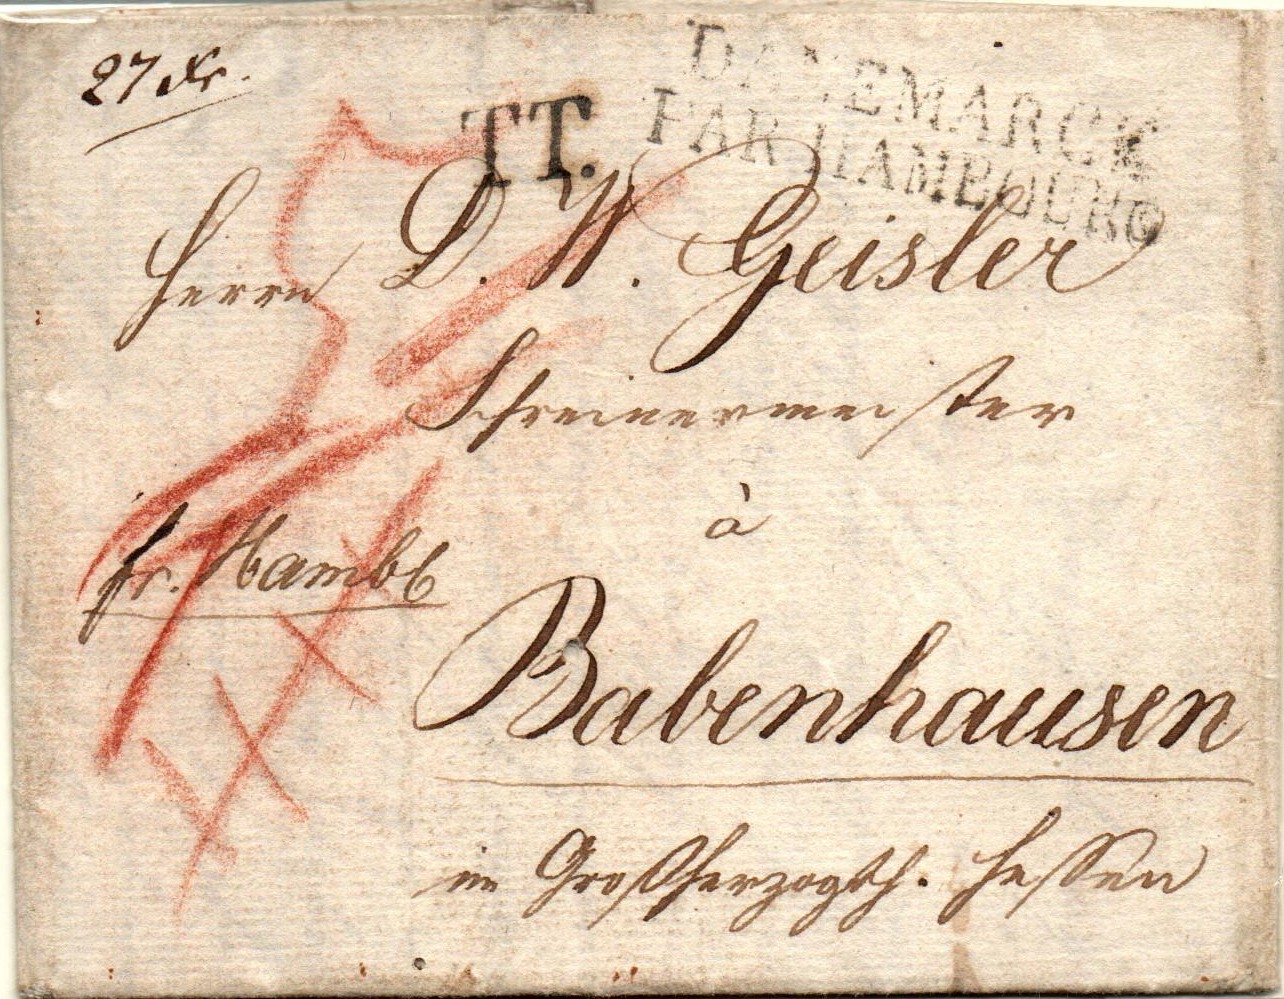 27 Xr.
TT.
DANEMARCK
PAR HAMBOURG
Herrn D. W. Geisler
Schreinermeister
à
fr. Hambg
Babenhausen
im Großherzogth. Hessen